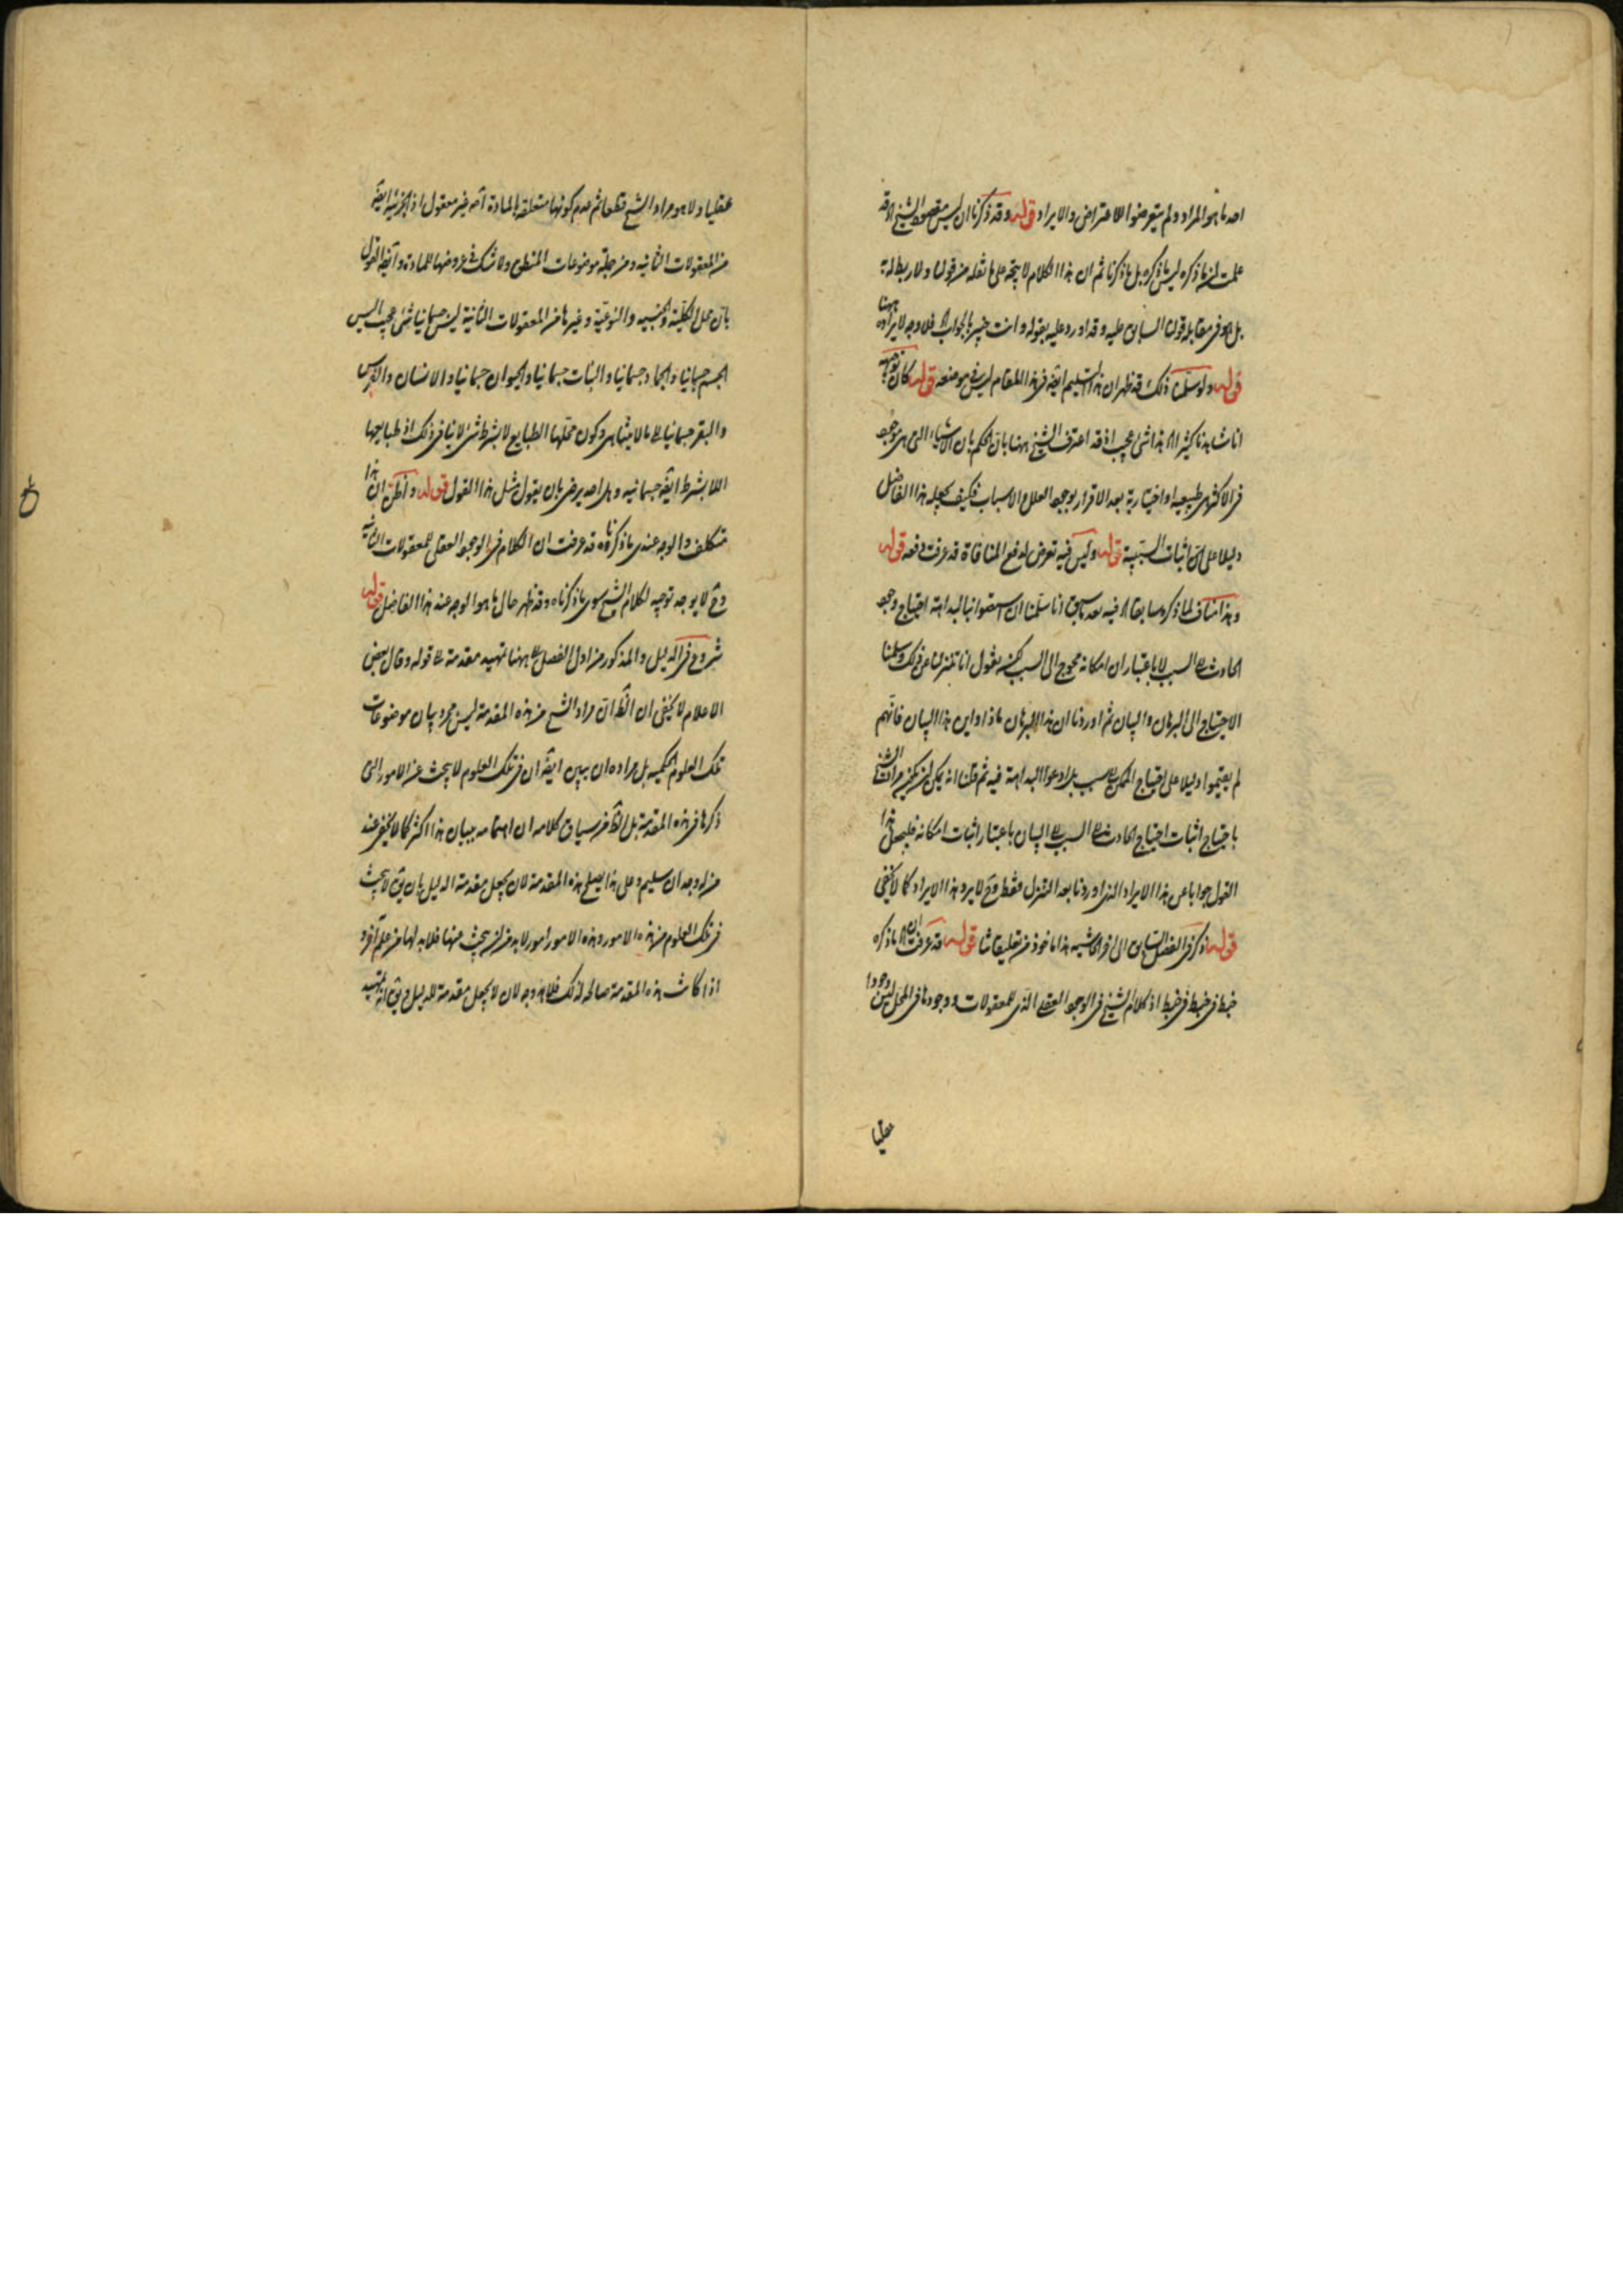 احد ما هو المراد ولم يتعرضوا للاعتراض والايراد قوله وقد ذكرنا ان ليس مقصود الشيخ اه قد
علمت ان ما ذكره ليس ما ذكره بل ما ذكرنا ثم ان هذا الكلام لا يتجه على ما نقله من قولنا ولا ربط له
بل هو في مقابلة قولنا السابق عليه وقد اورد عليه بقوله وانت خبير بالجواب فلا وجه لايراده ههنا
قوله ولو سلمنا ذلك قد ظهر ان هذا التسليم ايضا في هذا المقام ليس في موضعه قوله كان توجيهه
انا شاهدنا كثيرا اه هذا شيء عجيب اذ قد اعترف الشيخ ههنا بان الحكم بان الاشياء التي هي موجودة
في الاكثر هي طبيعية او اختيارية بعد الاقرار بوجود العلل والاسباب فكيف يجعله هذا الفاضل
دليلا على اثبات السببية قوله وليس فيه تعرض لدفع المنافاة قد عرفت دفعه قوله
وهذا مناف لما ذكره سابقا اه فيه بعد ما سبق انا سلمنا ان استقر انا بالبداهة احتياج وجود
الحادث الى السبب لا باعتبار ان امكانه محوج الى السبب لكنه يقول انا تنزلنا عن ذلك وسلمنا
الاحتياج الى البرهان والبيان ثم اوردنا ان هذا البرهان ماذا واين هذا البيان فانهم
لم يقيموا دليلا على احتياج الممكن الى سبب بل ادعوا البداهة فيه ثم قلنا انه يمكن ان يكون مراد الشيخ
باحتياج اثبات احتياج الحادث الى السبب الى البيان باعتبار اثبات امكانه فليجعل هذا
القول جوابا عن هذا الايراد الذي اوردنا بعد التنزل فقط وح لا يرد هذا الايراد كما لا يخفى
قوله ذكر في الفصل السابق الى اخر الحاشية هذا ماخوذ من تعليقاتنا قوله قد عرفت ان ما ذكره
خبط في خبط في خبط اذ كلام الشيخ في الوجود العقلي الذي للمعقولات ووجودها في المحل ليس وجودا
عقليا
عقليا ولا هو مراد الشيخ قطعا ثم عدم كونها متعلقة بالمادة اه غير معقول اذ الجزئية ايضا
من المعقولات الثانية ومن جملة موضوعات المنطق ولا شك في عروضها للمادة وايضا القول
بان محل الكلية والجنسية والنوعية وغيرها من المعقولات الثانية ليس جسمانيا شيء عجيب اليس
الجسم جسمانيا والجماد جسمانيا والنبات جسمانيا والحيوان جسمانيا والانسان والفرس
والبقر جسمانيا الى ما لا يتناهى وكون محلها الطبايع لا بشرط شيء لا ينافي ذلك اذ طبايعها
اللا بشرط ايضا جسمانية وهل احد يرضى بان يقول مثل هذا القول قوله واظن ان هذا
تكلف والوجه عندي ما ذكرناه قد عرفت ان الكلام في الوجود العقلي للمعقولات الثانية
وح لا يوجد توجيه لكلام الشيخ سوى ما ذكرناه وقد ظهر حال ما هو الوجه عند هذا الفاضل قوله
شروع في الدليل والمذكور من اول الفصل الى ههنا تمهيد مقدمة له قوله وقال بعض
الاعلام لا يخفى ان الظ ان مراد الشيخ من هذه المقدمة ليس مجرد بيان موضوعات
تلك العلوم الحكمية بل مراده ان يبين ايضا ان في تلك العلوم لا يبحث عن الامور التي
ذكرها في هذه المقدمة بل الظ من سياق كلامه ان اهتمامه ببيان هذا اكثر كما لا يخفى عند
من له وجدان سليم وعلى هذا يصلح هذه المقدمة لان يجعل مقدمة الدليل بان يق لا يبحث
في تلك العلوم من هذه الامور وهذه الامور امور لا بد من ان يبحث عنها فلا بد لها من علم آخر و
اذا كانت هذه المقدمة صالحة لذلك فلا وجه لان لا يجعل مقدمة للدليل ويق انه تمهيد